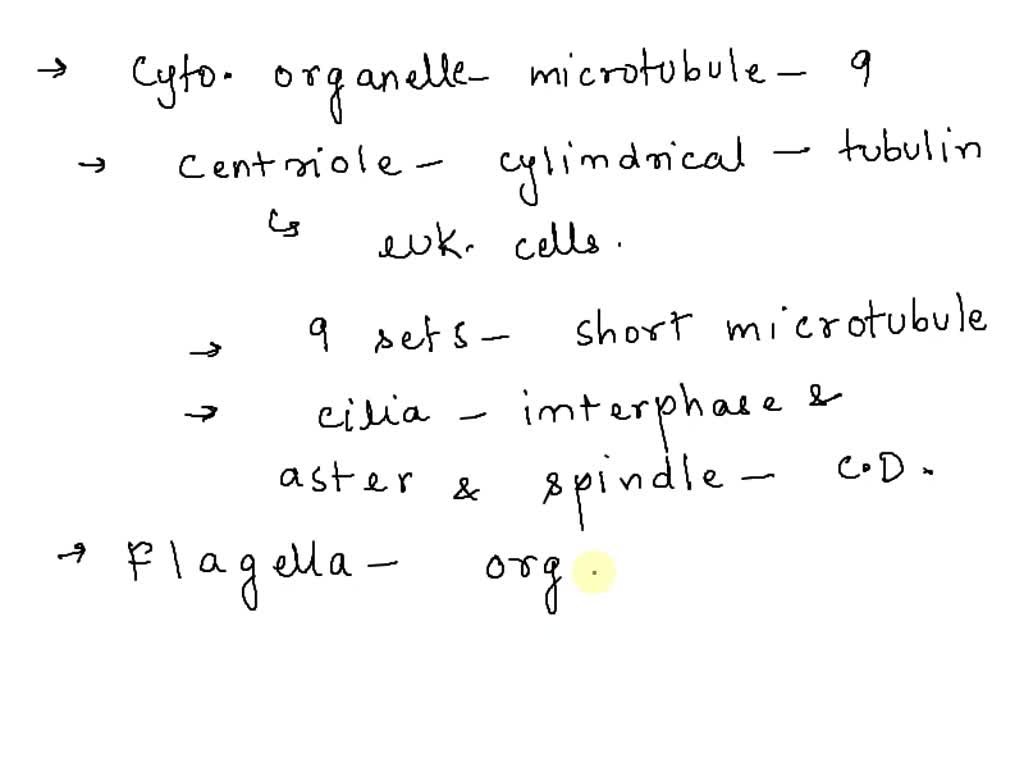 → Cyto. organelle - microtubule - 9
→ Centriole - cylindrical - tubulin
↳ euk. cells.
→ 9 sets - short microtubule
→ cilia - interphase &
aster & spindle - C.D.
→ Flagella - org